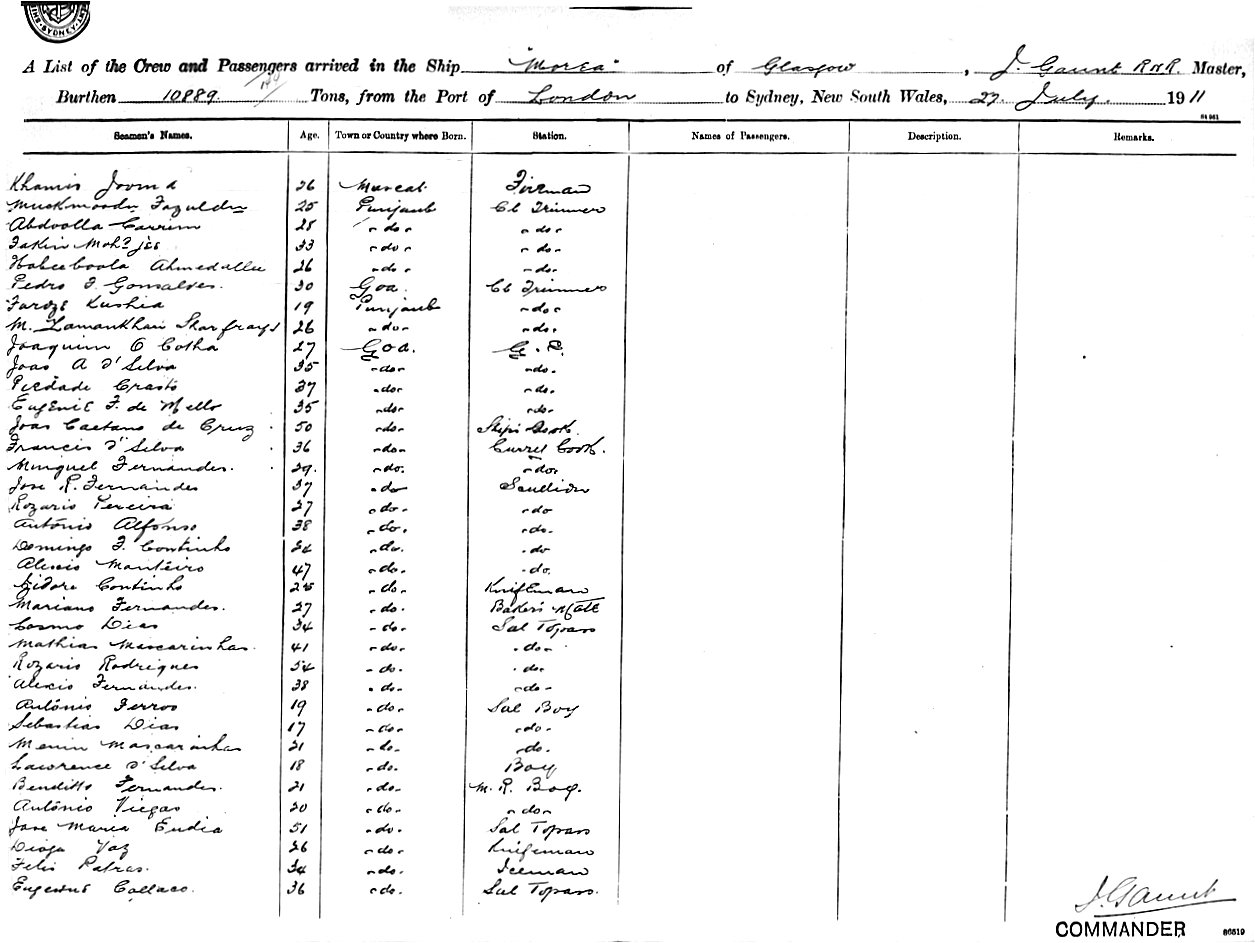 SYDNEY
A List of the Crew and Passengers arrived in the Ship "Morea" of Glasgow, J. Gaunt RNR. Master,
Burthen 10889. Tons, from the Port of London to Sydney, New South Wales, 27. July. 1911
Seamen's Names. Age. Town or Country where Born. Station. Names of Passengers. Description. Remarks.
Khamis Jooma 26 Muscat Fireman
25 Punjaub Cl Trimmer
Abdoolla Carrim 28 -do- -do-
Fakir Mohd 33 -do- -do-
Habeeboola Ahmedallee 26 -do- -do-
Pedro F. Gonsalves. 30 Goa. Cl Trimmer
19 Punjaub -do-
M. Zamankhan 26 -do- -do-
Joaquim C Cotha 27 Goa. G. P.
Joao A D'Silva 35 -do- -do-
Piedade Crasto 37 -do- -do-
Eugenie F. de Mello 35 -do- -do-
Joao Caetano de Cruz 50 -do- Ships Cook.
Francis D'Silva 36 -do- Curret Cook.
Minguel Fernandes. 29. -do- -do-
Jose R. Fernandes 37 -do- Scullion
Rozario Pereira 27 -do- -do
António Alfonso 38 -do- -do-
Domingo F. Continho 24 -do- -do
Alexio Monteiro 47 -do- -do.
Izidore Continho 25 -do- Knifeman
Mariano Fernandes. 27 -do- Baker's Mate
Cosmo Dias 34 -do- Sal Topass
Mathias Mascarinhas. 41 -do- -do-
Rozario Rodrigues 54 -do- -do-
Alexio Fernandes. 38 -do- -do-
António Ferros 19 -do- Sal Boy
Sebastias Dias 17 -do- -do-
Menin Mascarinhas 21 -do- -do-
Lawrence D'Silva 18 -do- Boy
Benditto Fernandes. 21 -do- M. R. Boy.
António Viegas 20 -do- -do-
Jose Maria 51 -do- Sal Topass
Diogo Vaz 26 -do- Knifeman
Felis 34 -do- Iceman
Collaco. 36 -do- Sal Topass.
J Gaunt
COMMANDER 86519